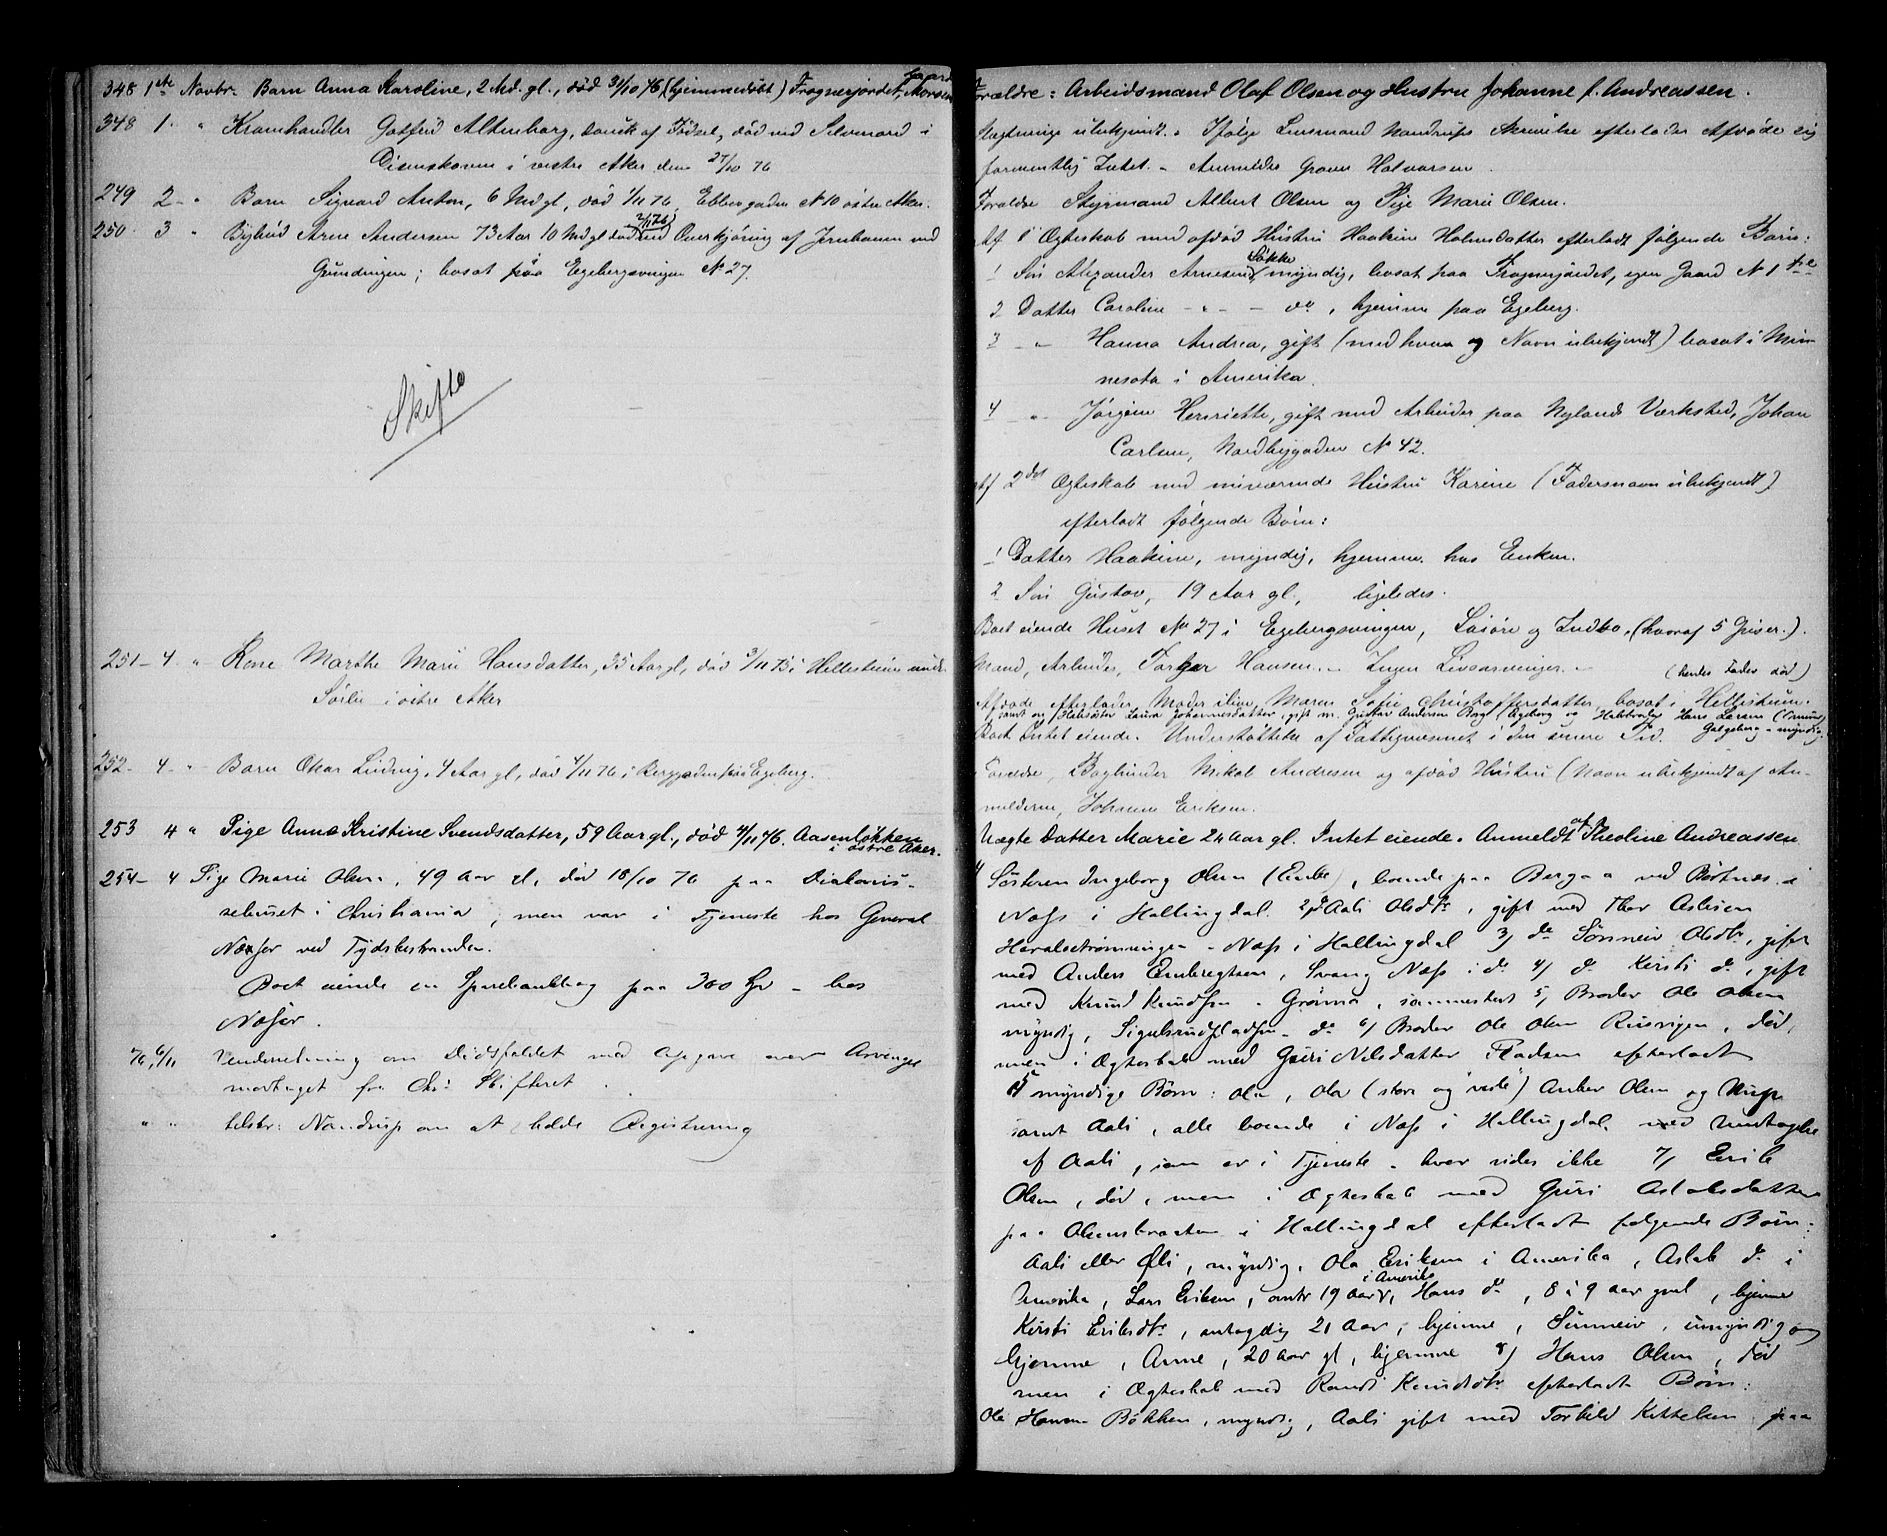 348 1ste Novbr. Barn Anna Karoline, 2 Md. gl., død 31/10 76 (hjemmedøbt) Frognerjordet,
348 1. " Kramhandler Gotfrid Altenborg, dansk af Fødsel, død ved Selvmord i
Disenskoven i vestre Aker den 27/10 76
249 2 - " Barn Sigvard Anton, 6 Md gl, død 1/11 76 Ebbergaden No 10 østre Aker.
250 3 " Bybud Arne Andersen 73 Aar 10 Md gl død 2/11 76 ved Overkjøring af Jernbanen ved
Grundingen; bosat paa Egebergsveigen No 27.
Skifte
251 - 4 " Kone Marthe Marie Hansdatter, 35 Aar gl, død 3/11 75 i Hellesteine under
Sørlie i østre Aker
252 - 4 - " Barn Oskar Ludvig, 4 Aar gl, død 4/11 76 i Berggaden paa Egeberg.
253 4 " Pige Anne Kristine Svendsdatter, 59 Aar gl., død 4/11 76. Aasenløkken
i østre Aker.
254 - 4 Pige Marie Olsen, 49 Aar gl, død 18/10 76 paa Diakonis-
sehuset i Christiania, men var i Tjeneste hos General
Næser ved Tydsbestranden.
Boet eiende en Sparebankbog paa 300 Kr - hos
Næser.
76, 6/11 Underretning om Dødsfaldet med Opgave over Arvinger
modtaget fra Chr: Skifteret.
" " tilskr: Nandrup om at holde Registrering
Forældre: Arbeidsmand Olaf Olsen og Hustru Johanne f. Andreassen.
Slægtninge ubekjendt. Ifølge Lensmand Nandrups Skrivelse efterlader Afdøde sig
formentlig Intet. - Anmelder Graver Halvorsen.
Forældre Styrmand Albert Olsen og Pige Marie Olsen.
Af 1 Ægteskab med afdød Hustru Haakine Holmsdatter efterladt følgende Børn:
1 Søn Alexander Arnesen Løkke, myndig, bosat paa Frognerjordet, egen Gaard No 1
2 Datter Caroline - " - - do, hjemme paa Egeberg.
3 - " Hanna Andrea, gift (med hvem og Navn ubekjendt) bosat i Min-
nesota i Amerika.
4 - " Jørgine Henriette, gift med Arbeider paa Nylands Værksted, Johan
Carlsen, Nordbygaden No 42.
Af 2det Ægteskab med nuværende Hustru Karine (Fadersnavn ubekjendt)
efterladt følgende Børn:
1 Datter Haakine, myndig, hjemme hos Enken.
2 Søn Gustav, 19 Aar gl., ligeledes.
Boet eiende Huset No 27 i Egebergsveigen, Løsøre og Indbo, (hvoraf 5 Griser.).
Mand, Arbeider, Torger Hansen. - Ingen Livsarvinger. - (hendes Fader død)
Afdøde efterlader Moder ilive, Maren Sofie Christoffersdatter, bosat i Hellestein.
samt en Halvsøster Laura Johannesdatter, gift m. Gustav Andersen Egeberg og Halvbroder Hans Larsen
Boet Intet eiende. Understøttelse af Fattigvæsenet i den senere Tid. Galgeberg - myndig.
Forældre, Bogbinder Mikal Andresen og afdød Hustru (Navn ubekjendt af An-
melderen, Johanne Eriksen.
Uægte Datter Marie 24 Aar gl. Intet eiende. Anmeldt af Theoline Andreassen
1/ Søsteren Ingeborg Olsen (Enke), boende paa Berg ved Børtnes i
Næss i Hallingdal. 2/ Aali Olsdtr, gift med Thor Aslesen
Haraldsstrømmingen - Næss i Hallingdal 3/ do Sønneiv Olsdtr, gift
med Anders Embregtsen, Svang Næss i do 4/ do Kirsti do, gift
med Knud Knudsen - Grønna, sammesteds 5/ Broder Ole Olsen
myndig, Sigulsrudpladsen - do 6/ Broder Ole Olsen Ruosvigen, død,
men i Ægteskab med Guri Nilsdatter Pladsen efterladt
5 myndige Børn: Ole, Ola (store og "vesle") Anker Olsen og
samt Aali, alle boende i Næss i Hallingdal med Undtagelse
af Aali, som er i Tjeneste - hvor vides ikke 7/ Erik
Olsen, død, men i Ægteskab med Guri Aslaksdatter
paa Olsensbraaten i Hallingdal efterladt følgende Børn:
Aali eller Øli, myndig, Ola Eriksen i Amerika, Aslak do i
Amerika, Lars Eriksen, omtr 19 Aar i Amerika, Hans do, 8 à 9 Aar gml, hjemme
Kirsti Eriksdtr, antagelig 21 Aar, hjemme, Sønneiv, umyndig og
hjemme, Anne, 20 Aar gl, hjemme 8/ Hans Olsen, død
men i Ægteskab med Randi Knudsdtr efterladt Børn:
Ole Hansen Bøkken, myndig, Aali gift med Torkild Kittelsen paa